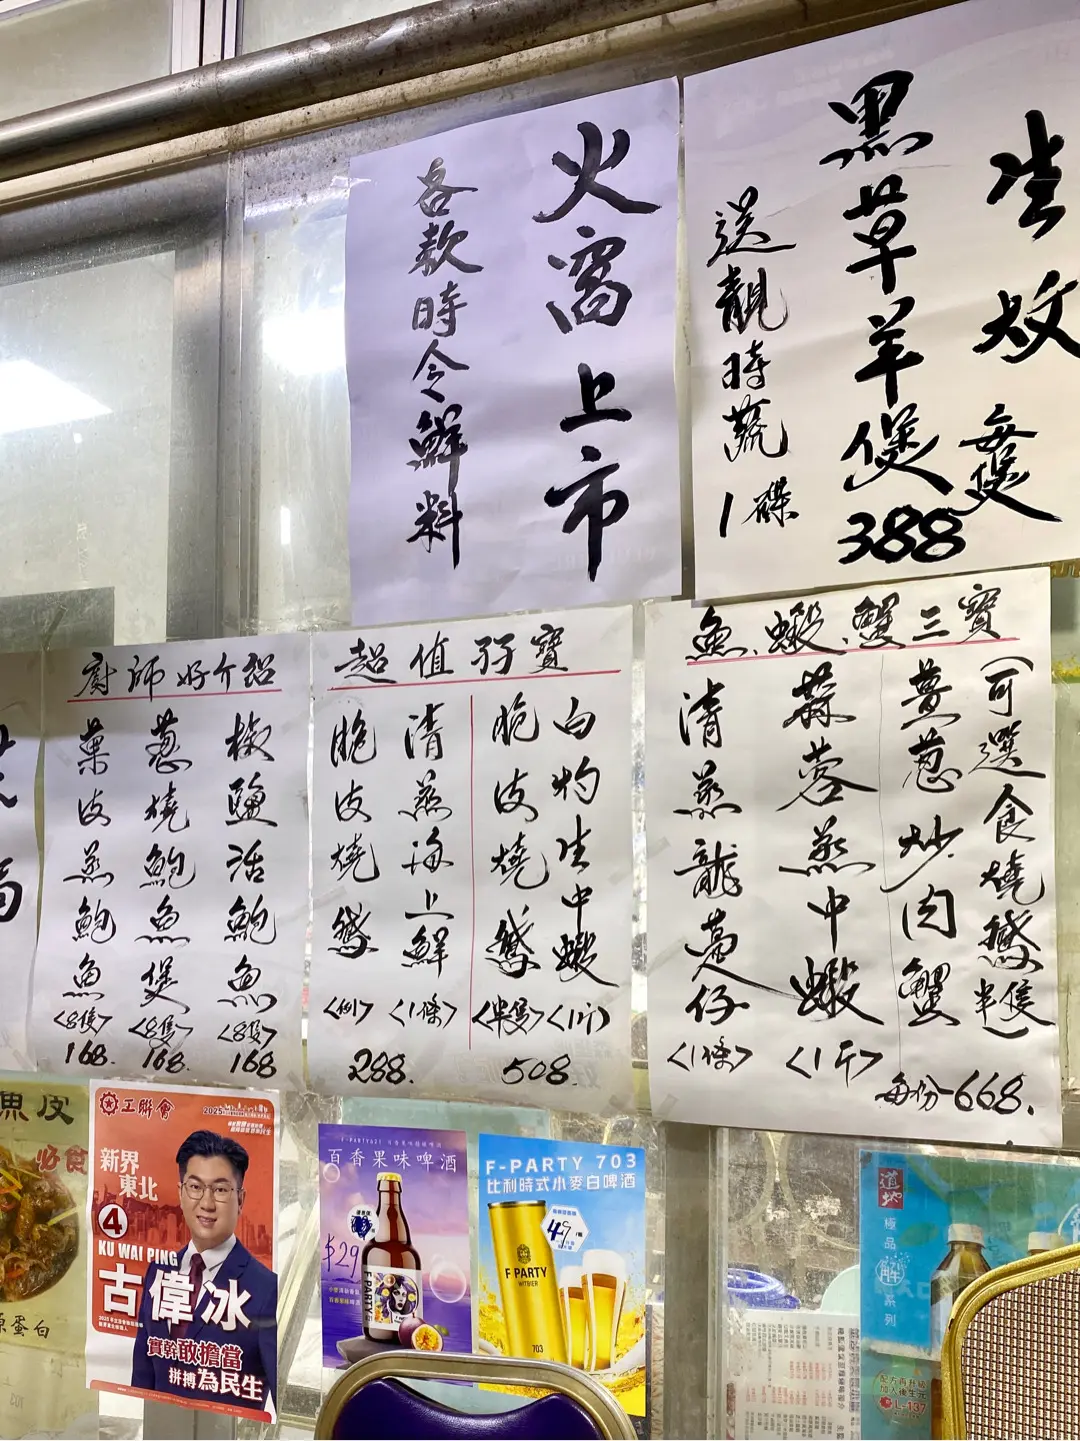 生炆
每煲
黑草羊煲
388
送靚時蔬
1碟
火窩上市
各款時令鮮料
魚.蝦.蟹三寶
(可選食燒鵝半隻)
薑葱炒肉蟹
蒜蓉蒸中蝦
<1斤>
清蒸龍躉仔
<1條>
每份-668.
超值孖寶
白灼生中蝦
<1斤>
脆皮燒鵝
<半隻>
508.
清蒸海上鮮
<1條>
脆皮燒鵝
<例>
288.
廚師好介紹
椒鹽活鮑魚
<8隻>
168
葱燒鮑魚煲
<8隻>
168.
菓皮蒸鮑魚
<8隻>
168.
魚皮
好食
原蛋白
工聯會
2025
新界
東北
4
KU WAI PING
古偉冰
實幹敢擔當
拼搏為民生
F-PARTY
百香果味啤酒
$29
F PARTY
F-PARTY 703
比利時式小麥白啤酒
49
F PARTY
WITBIER
703
道地
極品
解
系列
配方再升級
加入後生元
L-137